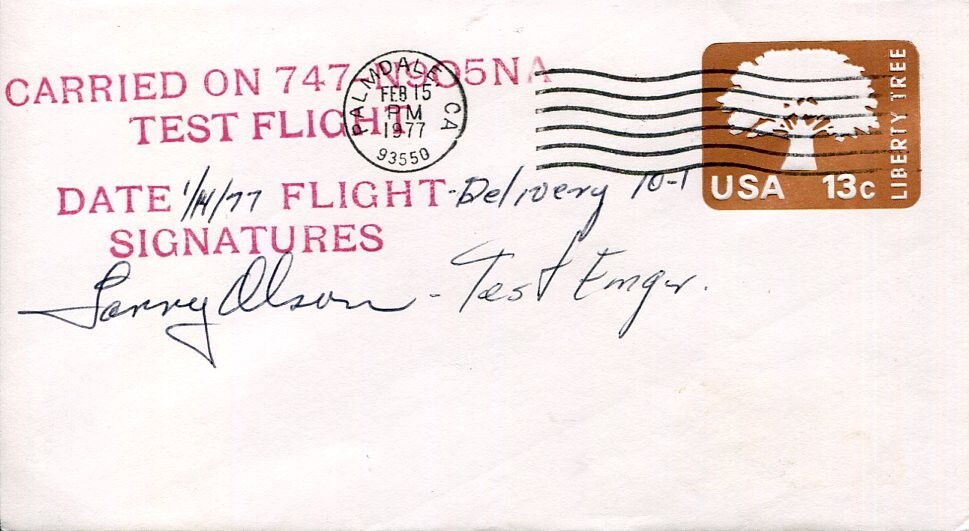 CARRIED ON 747 N905NA
TEST FLIGHT
DATE 1/14/77 FLIGHT-Delivery 10-1
SIGNATURES
Larry Olson - Test Engr.
PALMDALE CA
FEB 15
PM
1977
93550
USA 13c
LIBERTY TREE